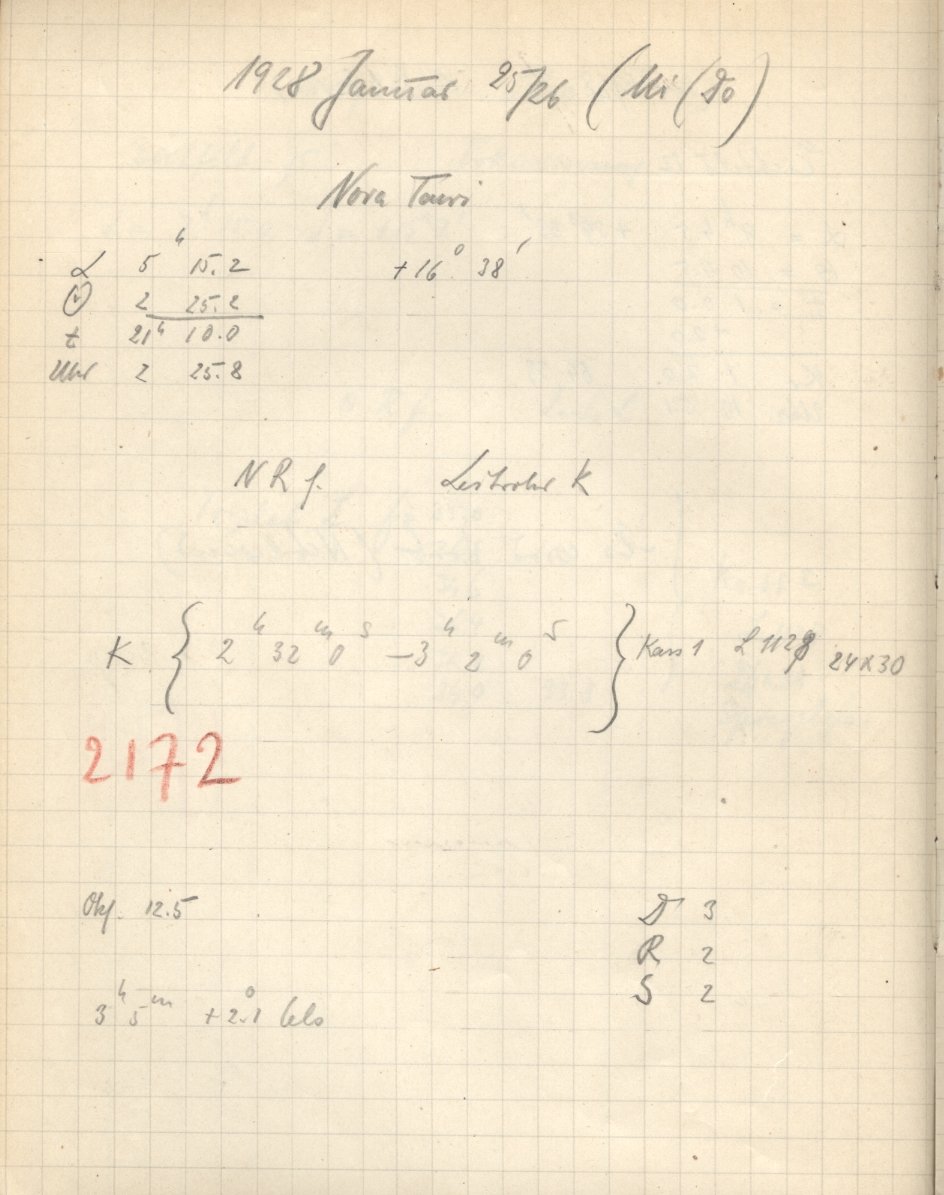 1928 Januar 25/26 (Mi/Do)
Nova Tauri
α 5ʰ 15.2 +16° 38′
2 25.2
t 21ʰ 10.0
Uhr 2 25.8
N R f. Leitrohr K
K { 2ʰ 32ᵐ 0ˢ – 3ʰ 2ᵐ 0ˢ } Kass 1 L 1128 24x30
2172
Okf. 12.5 D 3
R 2
S 2
3ʰ 5ᵐ +2.1°